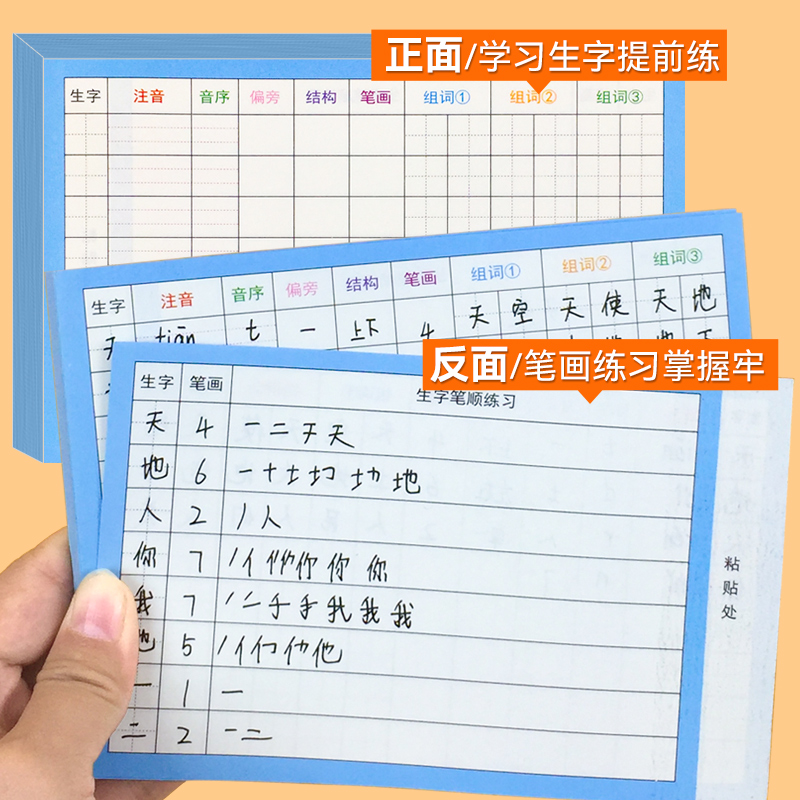 正面/学习生字提前练
生字 注音 音序 偏旁 结构 笔画 组词① 组词② 组词③
生字 注音 音序 偏旁 结构 笔画 组词① 组词② 组词③
天 tiān t 一 上下 4 天空 天使 天地
反面/笔画练习掌握牢
生字 笔画 生字笔顺练习
天 4 一 二 于 天
地 6 一 十 土 圠 地
人 2 丿 人
你 7 丿 亻 你 你 你
我 7 丿 二 于 手 我 我 我
他 5 丿 亻 他
一 1 一
二 2 一 二
粘贴处